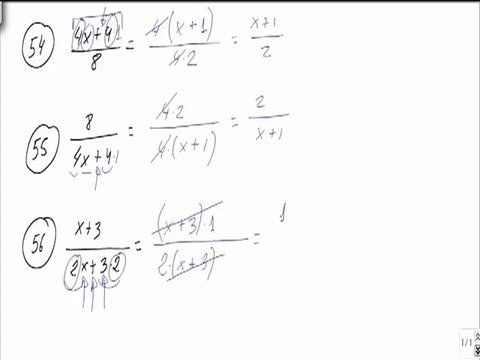 54 (4x+4·1)/8 = 4·(x+1)/4·2 = (x+1)/2
55 8/(4x+4·1) = 4·2/4·(x+1) = 2/(x+1)
56 (x+3)/(2x+3·2) = (x+3)·1/2·(x+3) = 1
1/1